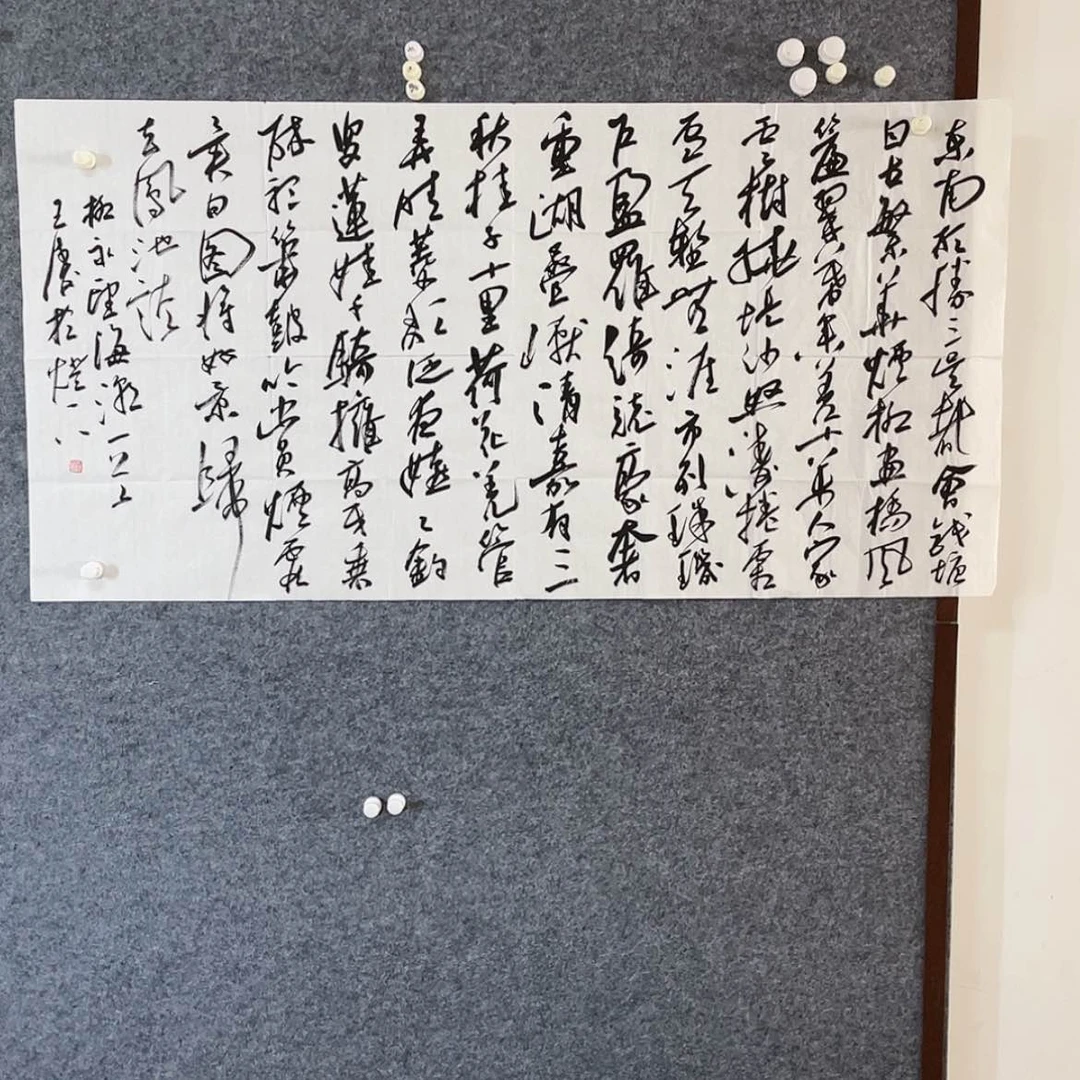 東南形勝三吳都會錢塘
自古繁華煙柳畫橋風
簾翠幕參差十萬人家
雲樹繞堤沙怒濤捲霜
雪天塹無涯市列珠璣
户盈羅綺競豪奢
重湖疊巘清嘉有三
秋桂子十里荷花羌管
弄晴菱歌泛夜嬉々釣
叟蓮娃千騎擁高牙乘
醉聽簫鼓吟賞煙霞
異日圖將好景歸
去鳳池誇
柳永望海潮一
王